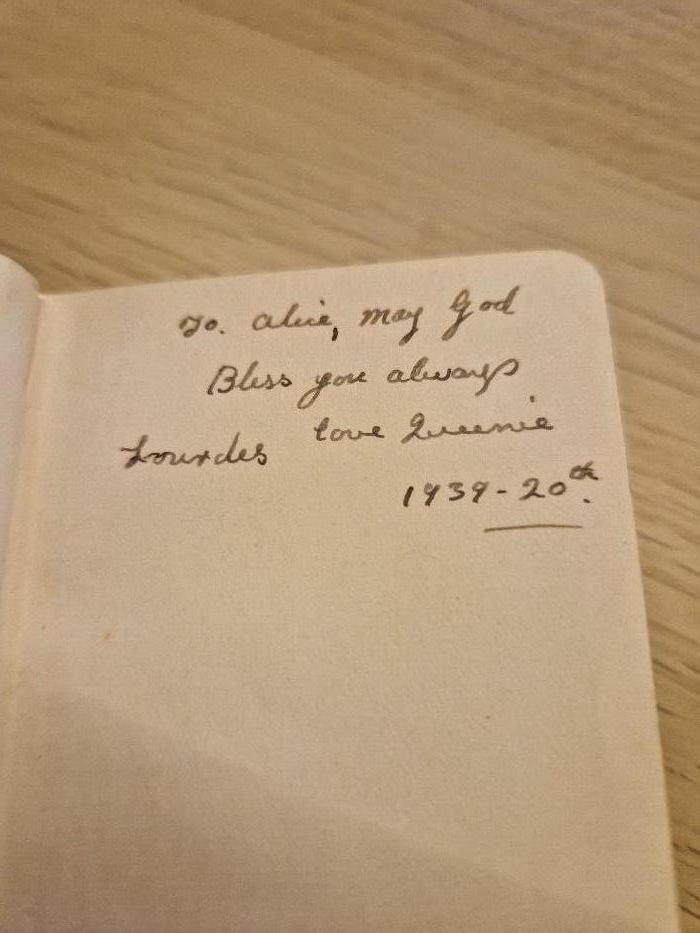 To. Alice, may God
Bless you always
Lourdes love Queenie
1939-20th.